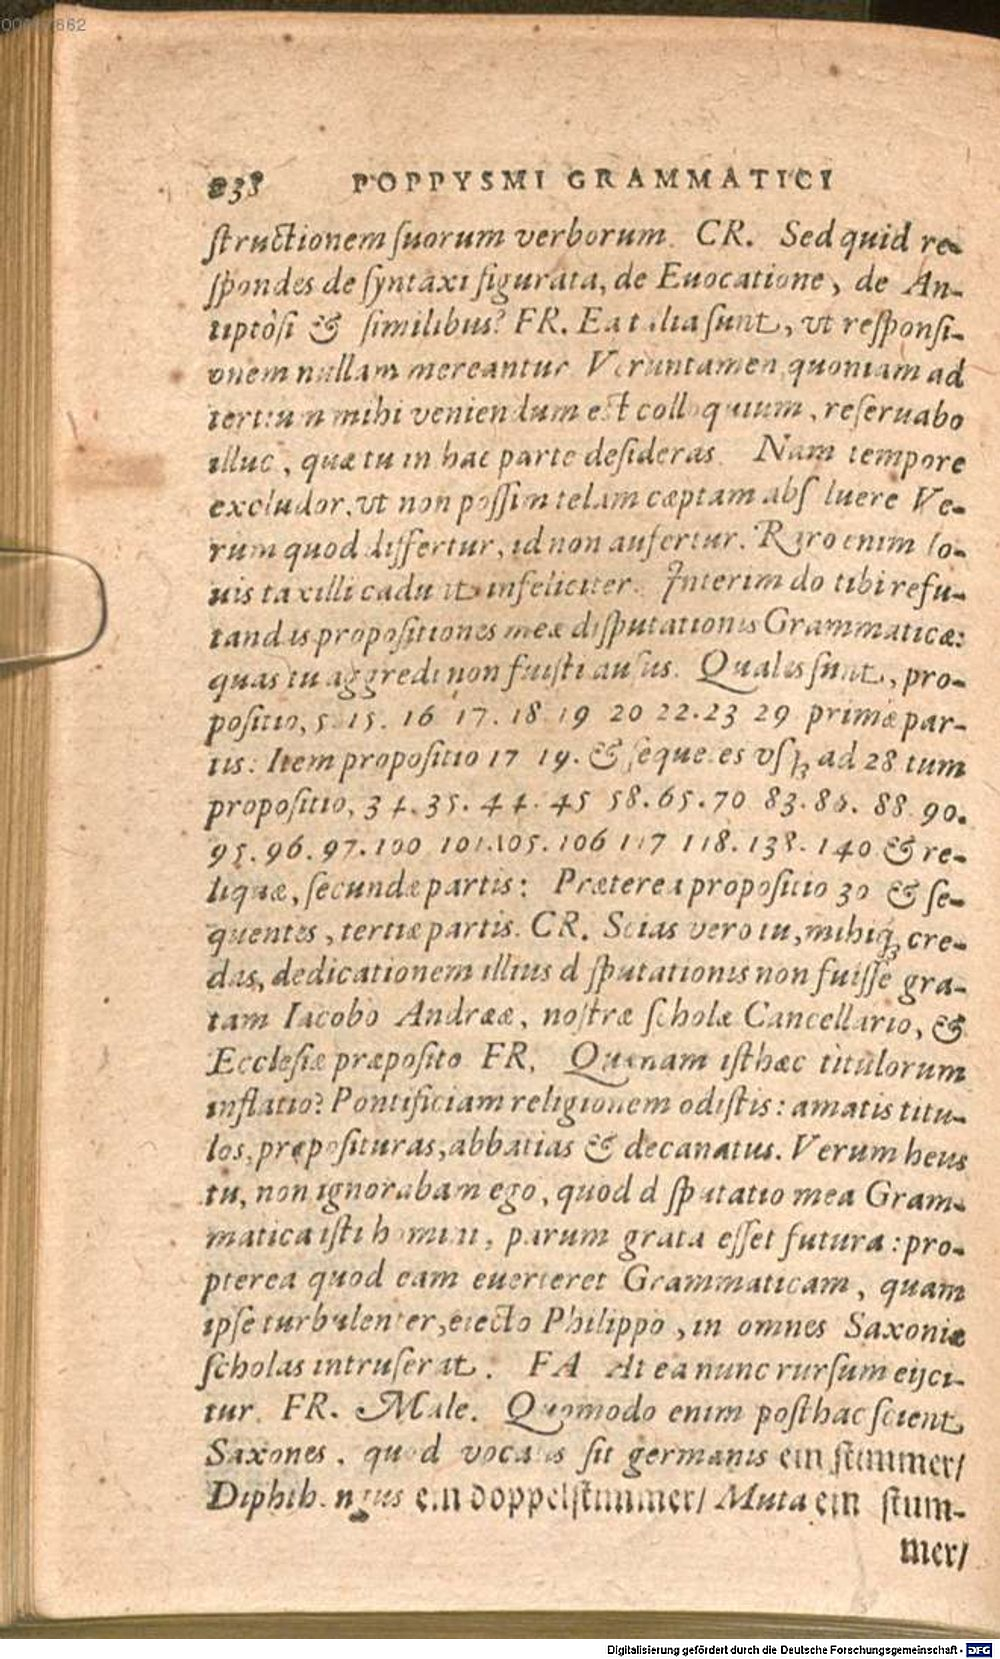 238 POPPYSMI GRAMMATICI
ſtructionem ſuorum verborum. CR. Sed quid re-
ſpondes de ſyntaxi figurata, de Euocatione, de An-
tiptòſi & ſimilibus? FR. Ea talia ſunt, vt reſponſi-
onem nullam mereantur. Veruntamen quoniam ad
tertium mihi veniendum eſt colloquium, reſeruabo
illuc, quæ tu in hac parte deſideras. Nam tempore
excludor, vt non poſſim telam cœptam abſoluere Ve-
rum quod differtur, id non aufertur. Raro enim Io-
uis taxilli cadunt infeliciter. Interim do tibi refu-
tandas propoſitiones meæ diſputationis Grammaticæ:
quas tu aggredi non fuiſti auſus. Quales ſunt, pro-
poſitio, 5. 15. 16 17. 18 19 20 22. 23 29 primæ par-
tis: Item propoſitio 17 19. & ſequētes vſq; ad 28 tum
propoſitio, 34. 35. 44. 45 58. 65. 70 83. 86. 88. 90.
95. 96. 97. 100 101. 105. 106 117 118. 138. 140 & re-
liquæ, ſecundæ partis: Præterea propoſitio 30 & ſe-
quentes, tertiæ partis. CR. Scias vero tu, mihiq; cre-
das, dedicationem illius diſputationis non fuiſſe gra-
tam Iacobo Andrææ, noſtræ ſcholæ Cancellario, &
Eccleſiæ præpoſito FR. Quænam iſthæc titulorum
inflatio? Pontificiam religionem odiſtis: amatis titu-
los, præpoſituras, abbatias & decanatus. Verum heus
tu, non ignorabam ego, quod diſputatio mea Gram-
matica iſti homini, parum grata eſſet futura: pro-
pterea quod eam euerteret Grammaticam, quam
ipſe turbulenter, eiecto Philippo, in omnes Saxoniæ
ſcholas intruſerat. FA At ea nunc rurſum eijci-
tur. FR. Male. Quomodo enim poſthac ſcient
Saxones, quod vocalis ſit germanis ein ſtimmer/
Diphthongus ein doppelſtimmer/ Muta ein ſtum-
mer/
Digitalisierung gefördert durch die Deutsche Forschungsgemeinschaft - DFG